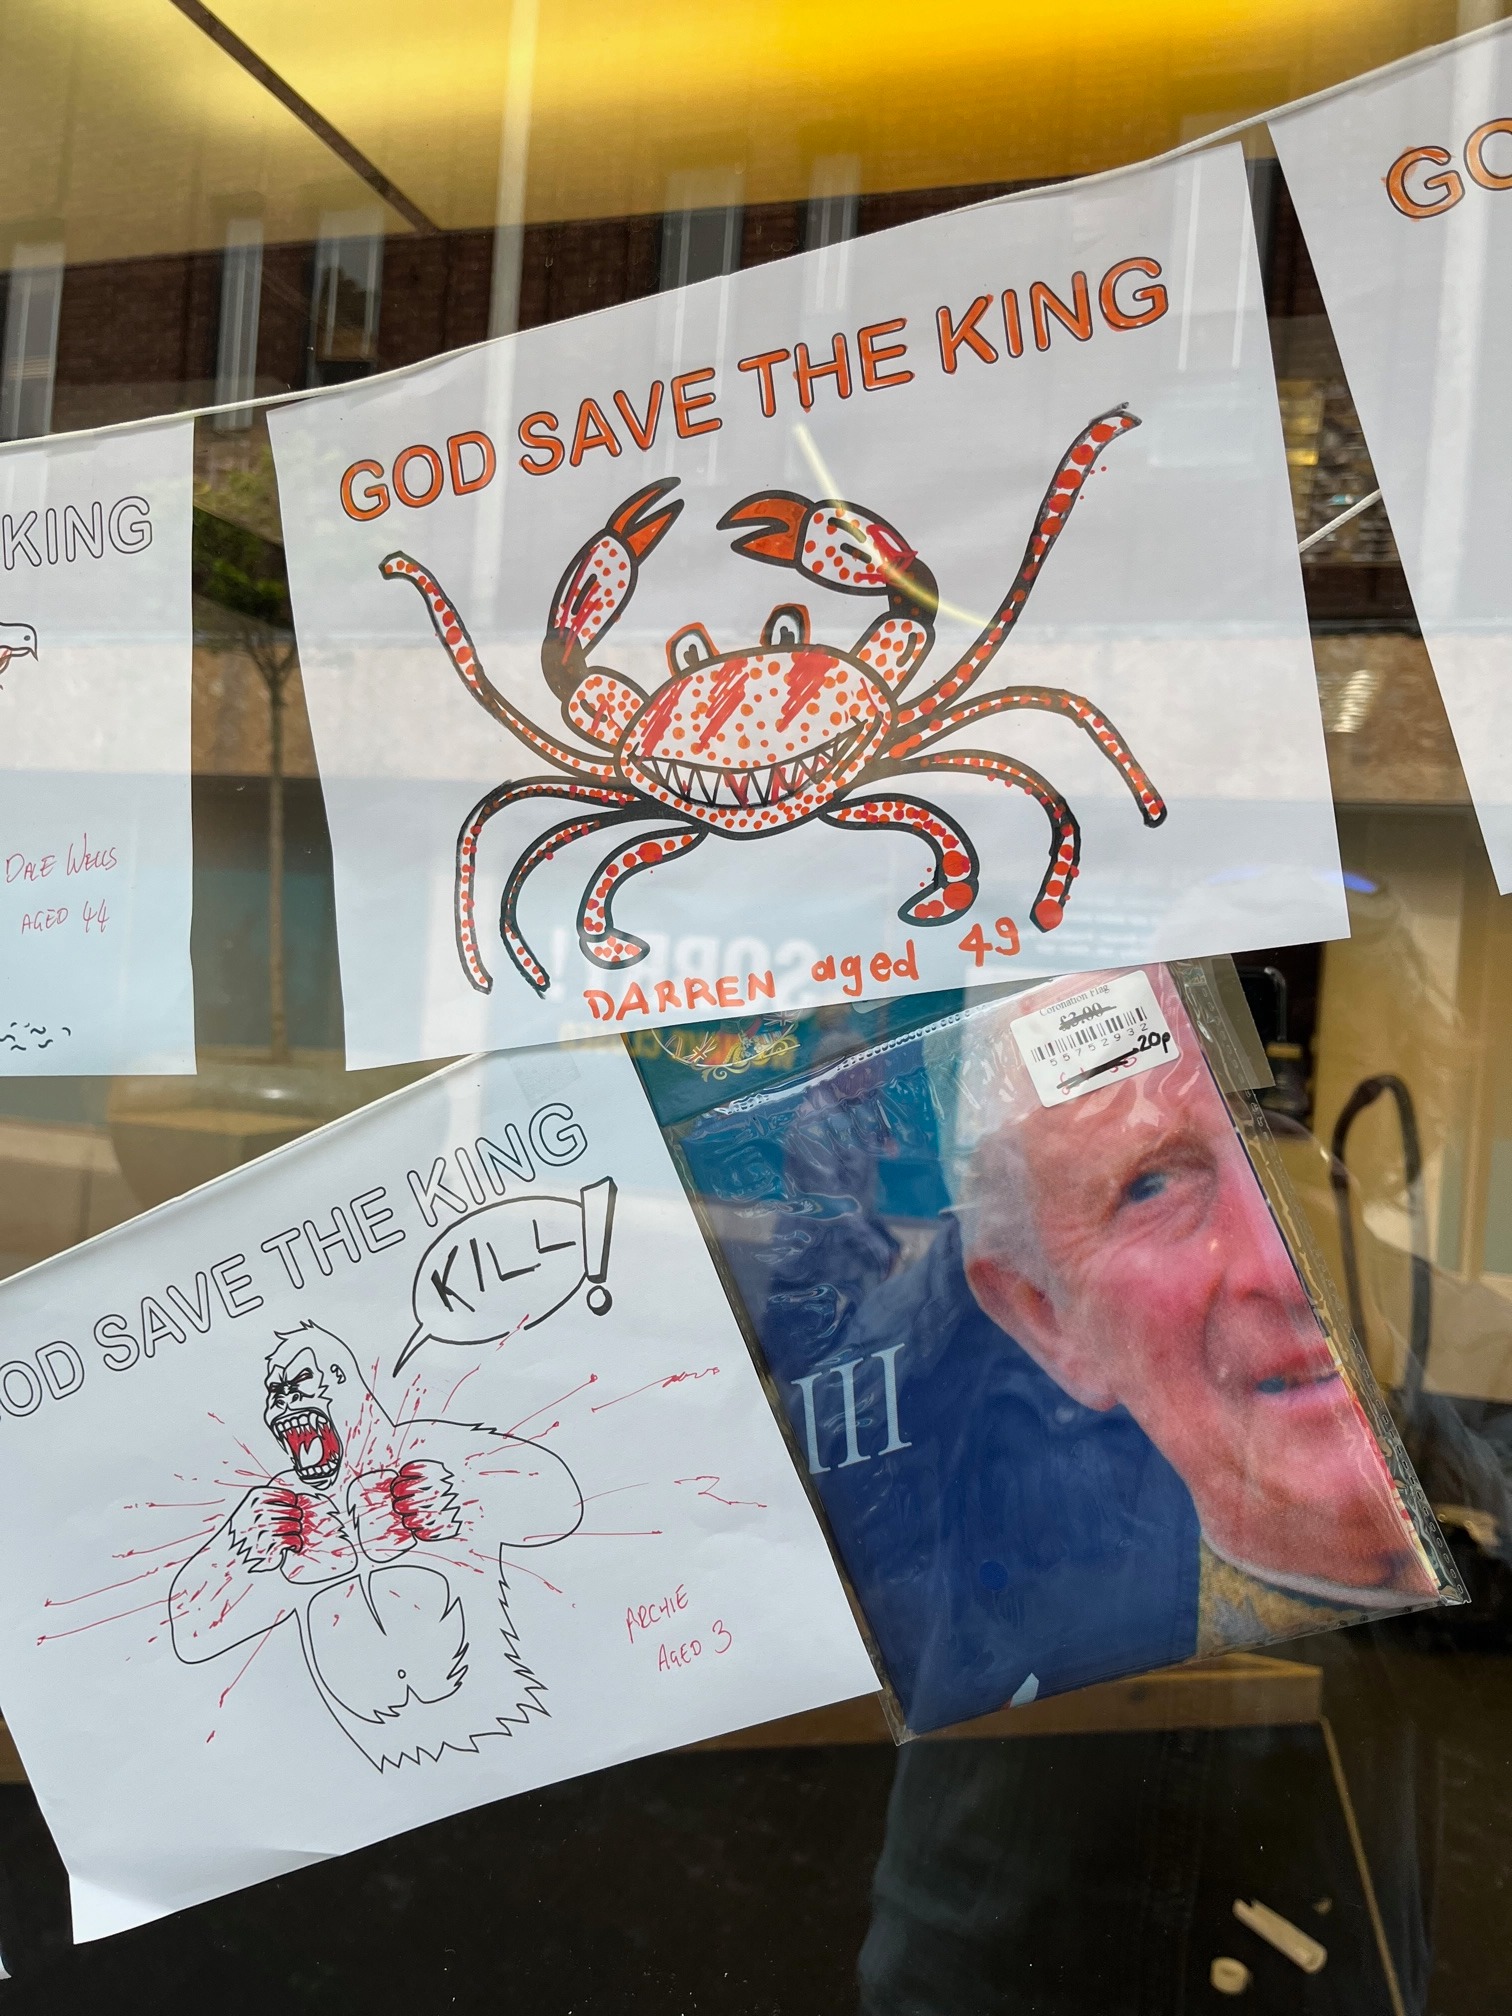 GO
GOD SAVE THE KING
KING
DALE WELLS
AGED 44
DARREN aged 49
Coronation Flag
£3.00
55752932
20p
GOD SAVE THE KING
KILL!
III
ARCHIE
AGED 3